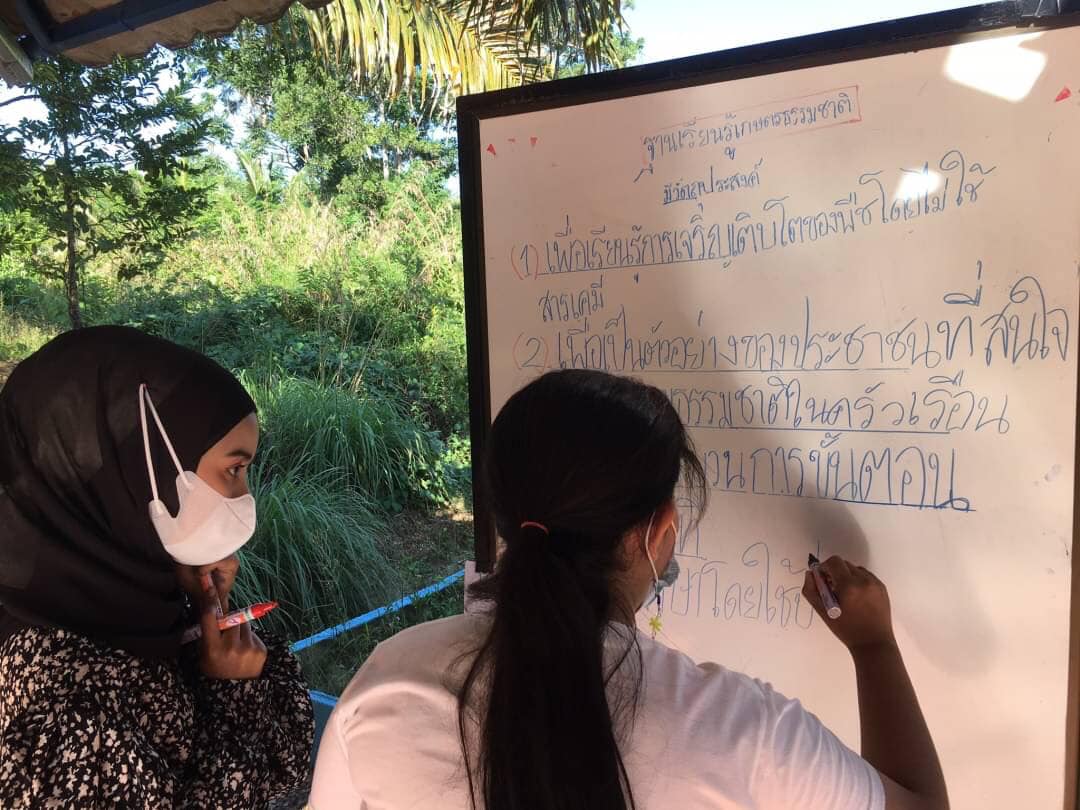 ฐานเรียนรู้เกษตรธรรมชาติ
มีวัตถุประสงค์
(1) เพื่อเรียนรู้การเจริญเติบโตของพืชโดยไม่ใช้
สารเคมี
(2) เพื่อเป็นตัวอย่างของประชาชนที่สนใจ
ธรรมชาติในครัวเรือน
นการขั้นตอน
โดยใช้